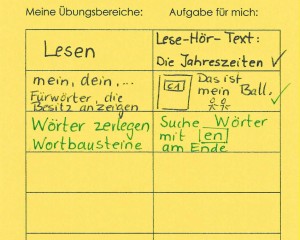 Meine Übungsbereiche:
Aufgabe für mich:
Lesen
Lese-Hör-Text:
Die Jahreszeiten ✓
mein, dein,...
Fürwörter, die
Besitz anzeigen
C1
Das ist
mein Ball. ✓
Wörter zerlegen
Wortbausteine
Suche Wörter
mit en
am Ende